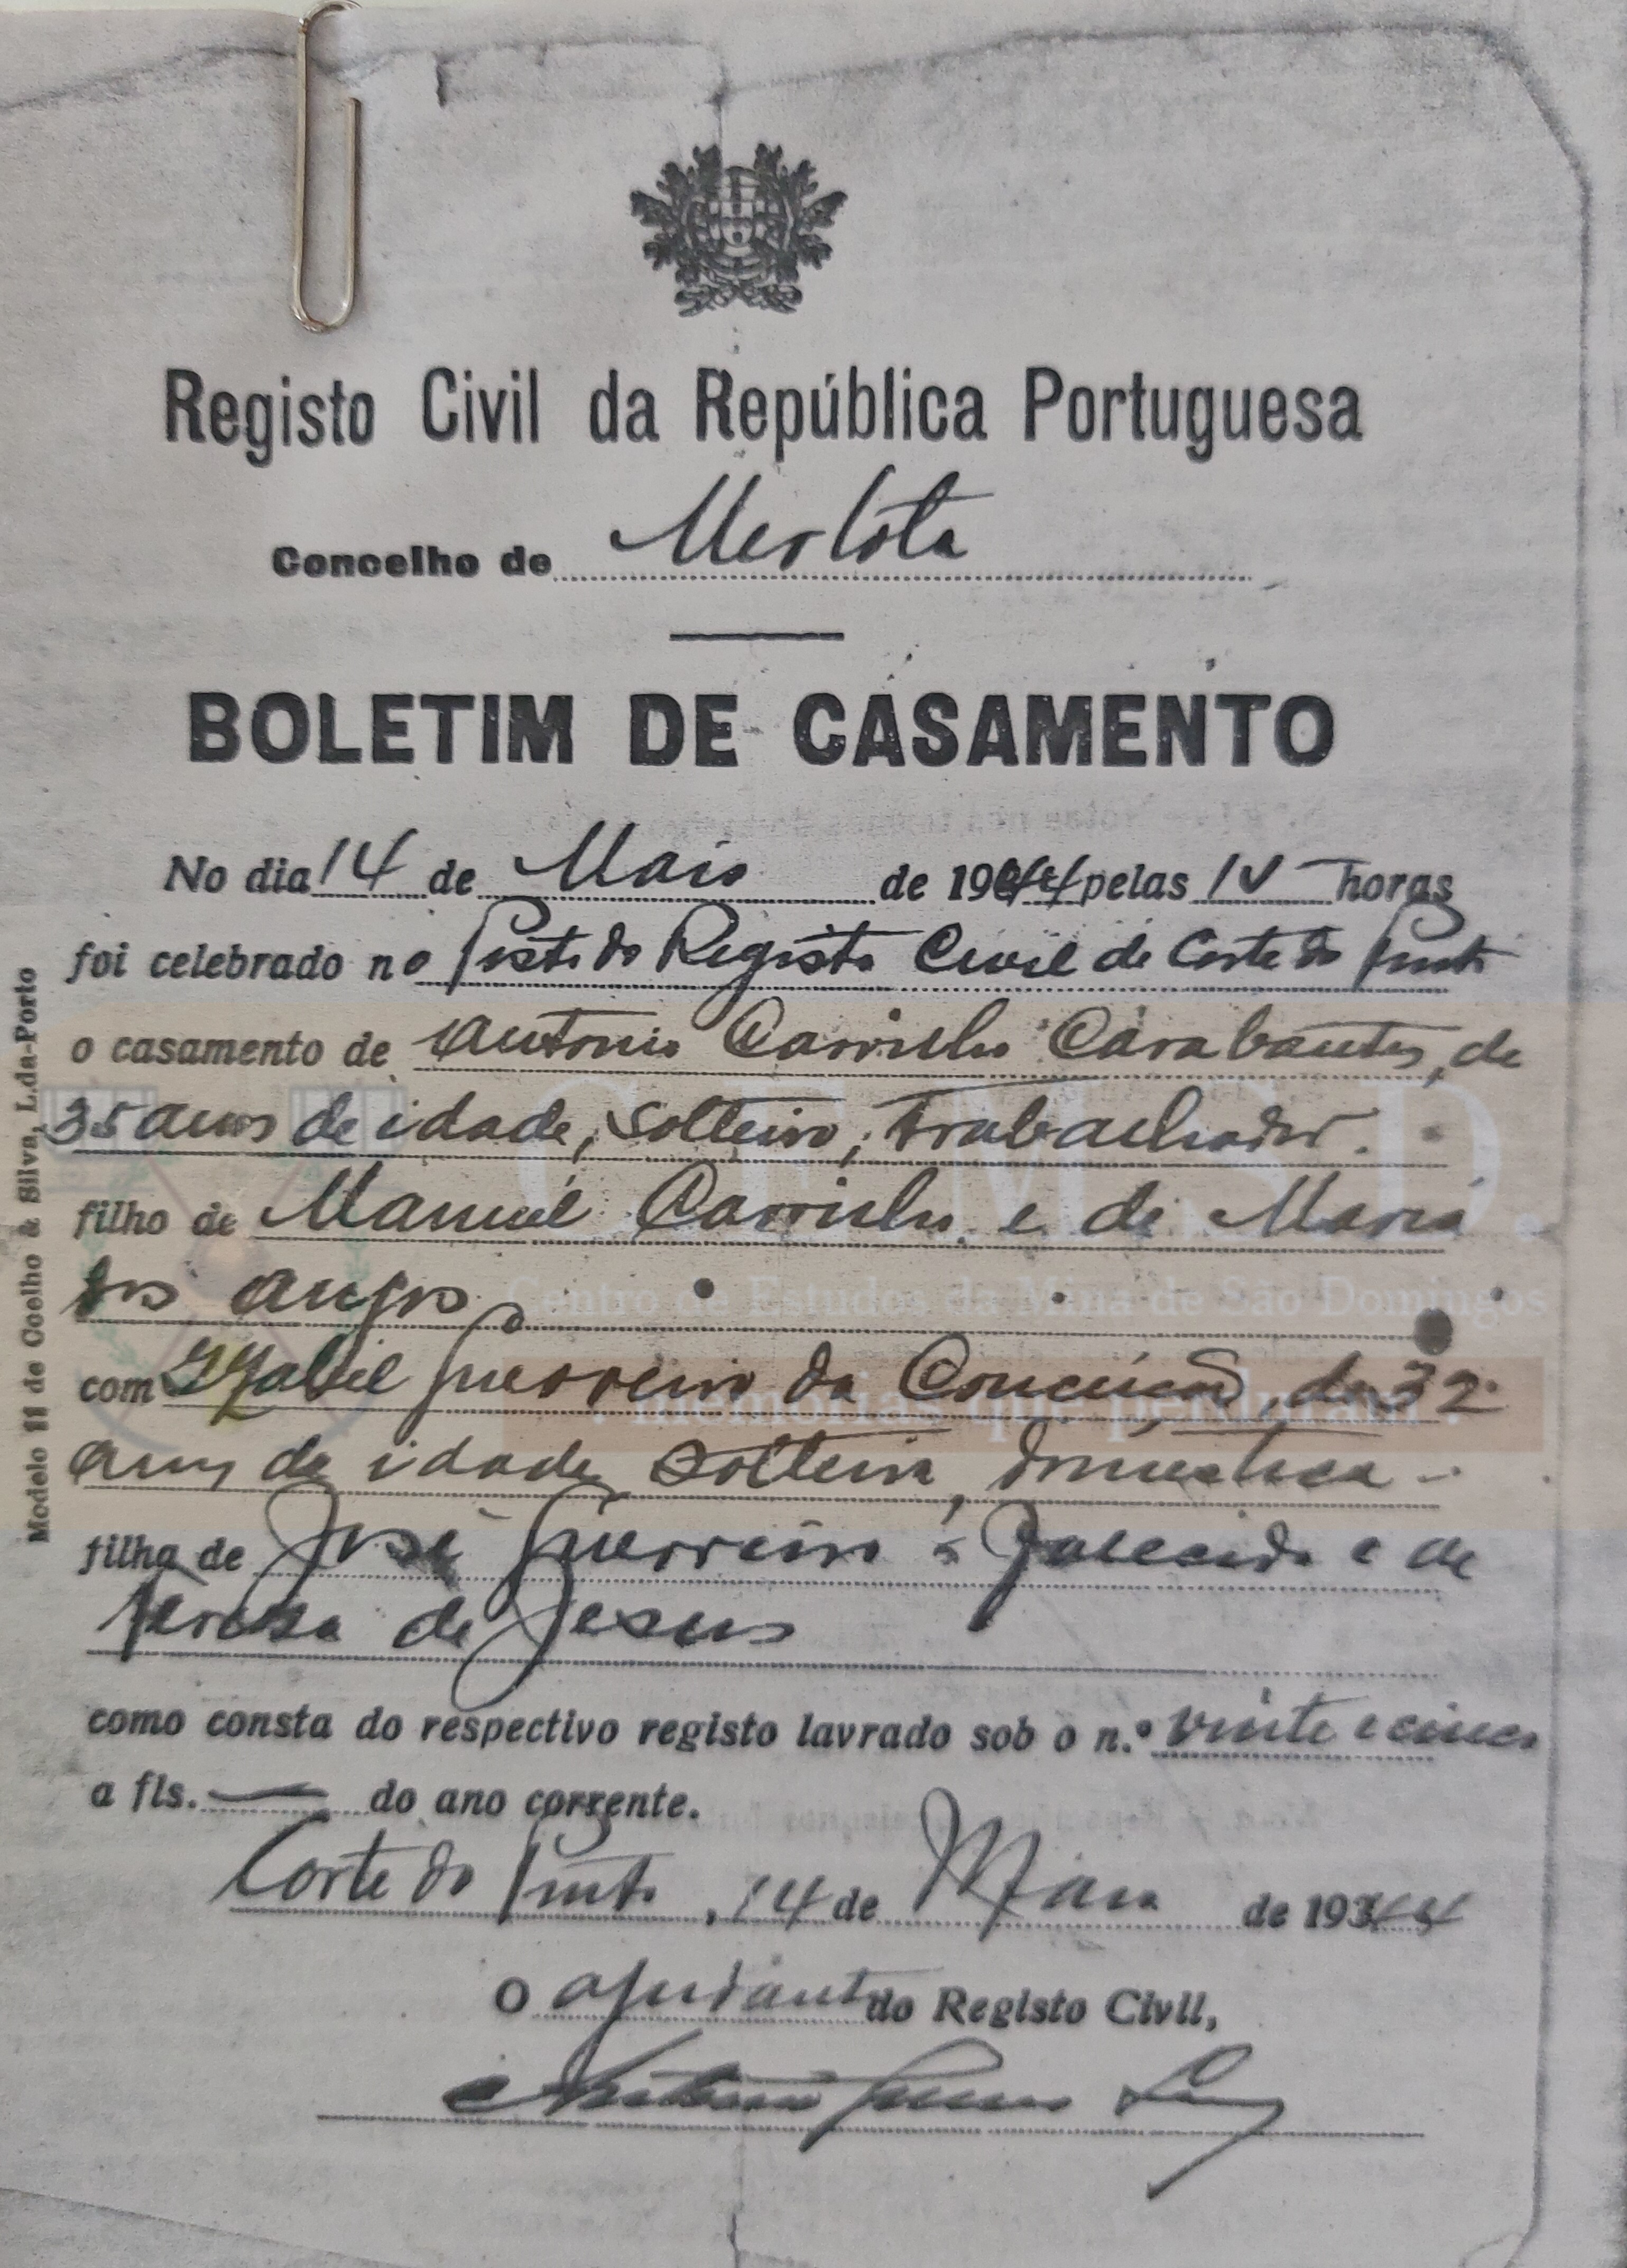 Registo Civil da República Portuguesa
Concelho de Mertola
BOLETIM DE CASAMENTO
No dia 14 de Maio de 1944 pelas horas
foi celebrado no Posto do Registo Civil de Corte do Pinto
o casamento de Antonio Carrilho Carabantes, de
35 anos de idade, solteiro, trabalhador.
filho de Manuel Carrilho e de Maria
dos Anjos
com Izabel Guerreiro da Conceição, de 32
anos de idade solteira, domestica
filha de José Guerreiro falecido e de
Tereza de Jesus
como consta do respectivo registo lavrado sob o n.º vinte e cinco
a fls. — do ano corrente.
Corte do Pinto, 14 de Maio de 1944
O ajudante do Registo Civil,
Modelo 11 de Coelho & Silva, L.da-Porto
C.E.M.S.D.
Centro de Estudos da Mina de São Domingos
memórias que perduram